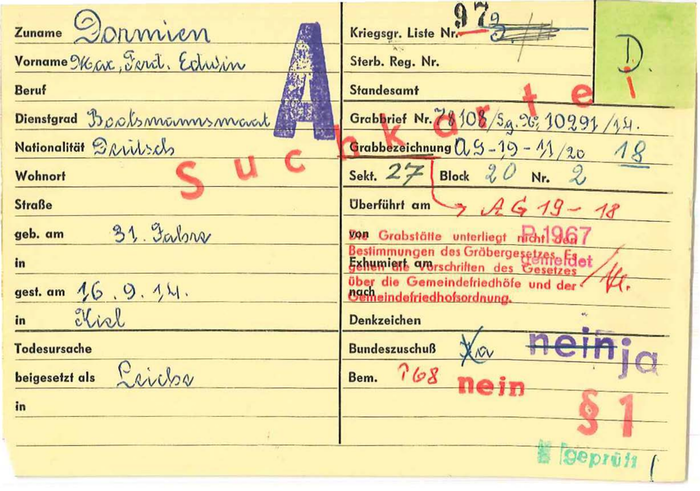 Zuname Dormien
Vorname Max, Ferd. Edwin
Beruf
Dienstgrad Bootsmannsmaat
Nationalität Deutsch
Wohnort
Straße
geb. am 31. Jahre
in
gest. am 16. 9. 14.
in Kiel
Todesursache
beigesetzt als Leiche
in
A
Suchkartei
Kriegsgr. Liste Nr. 979
D.
Sterb. Reg. Nr.
Standesamt
Grabbrief Nr. 78108/Sg. № 10291/14.
Grabbezeichnung AG-19-11/20 18
Sekt. 27 Block 20 Nr. 2
Überführt am AG 19-18
von
P.1967
gemeldet
Die Grabstätte unterliegt nicht den
Bestimmungen des Gräbergesetzes. Es
gelten die Vorschriften des Gesetzes
über die Gemeindefriedhöfe und der
Gemeindefriedhofsordnung.
Exhumiert am
nach
Denkzeichen
Bundeszuschuß Ja nein ja
Bem. 768 nein
§ 1
geprüft